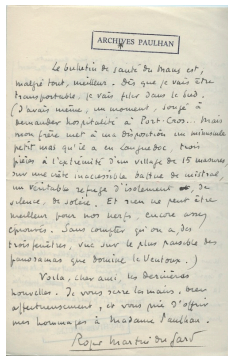 ARCHIVES PAULHAN
Le bulletin de santé du Mans est,
malgré tout, meilleur. Dès que je vais être
transportable, je vais filer dans le Sud.
(J'avais même, un moment, songé à
demander hospitalité à Port-Cros... Mais
mon frère met à ma disposition un minuscule
petit mas qu'il a en Languedoc, trois
pièces à l'extrémité d'un village de 15 masures,
sur une crête inaccessible battue de mistral,
un véritable refuge d'isolement, de
silence, de soleil. Et rien ne peut être
meilleur pour nos nerfs, encore assez
éprouvés. Sans compter qu'on a, des
trois fenêtres, vue sur le plus paisible des
panoramas que domine le Ventoux.)
Voilà, cher ami, les dernières
nouvelles. Je vous serre les mains, bien
affectueusement, et vous prie d'offrir
mes hommages à Madame Paulhan.
Roger Martin du Gard